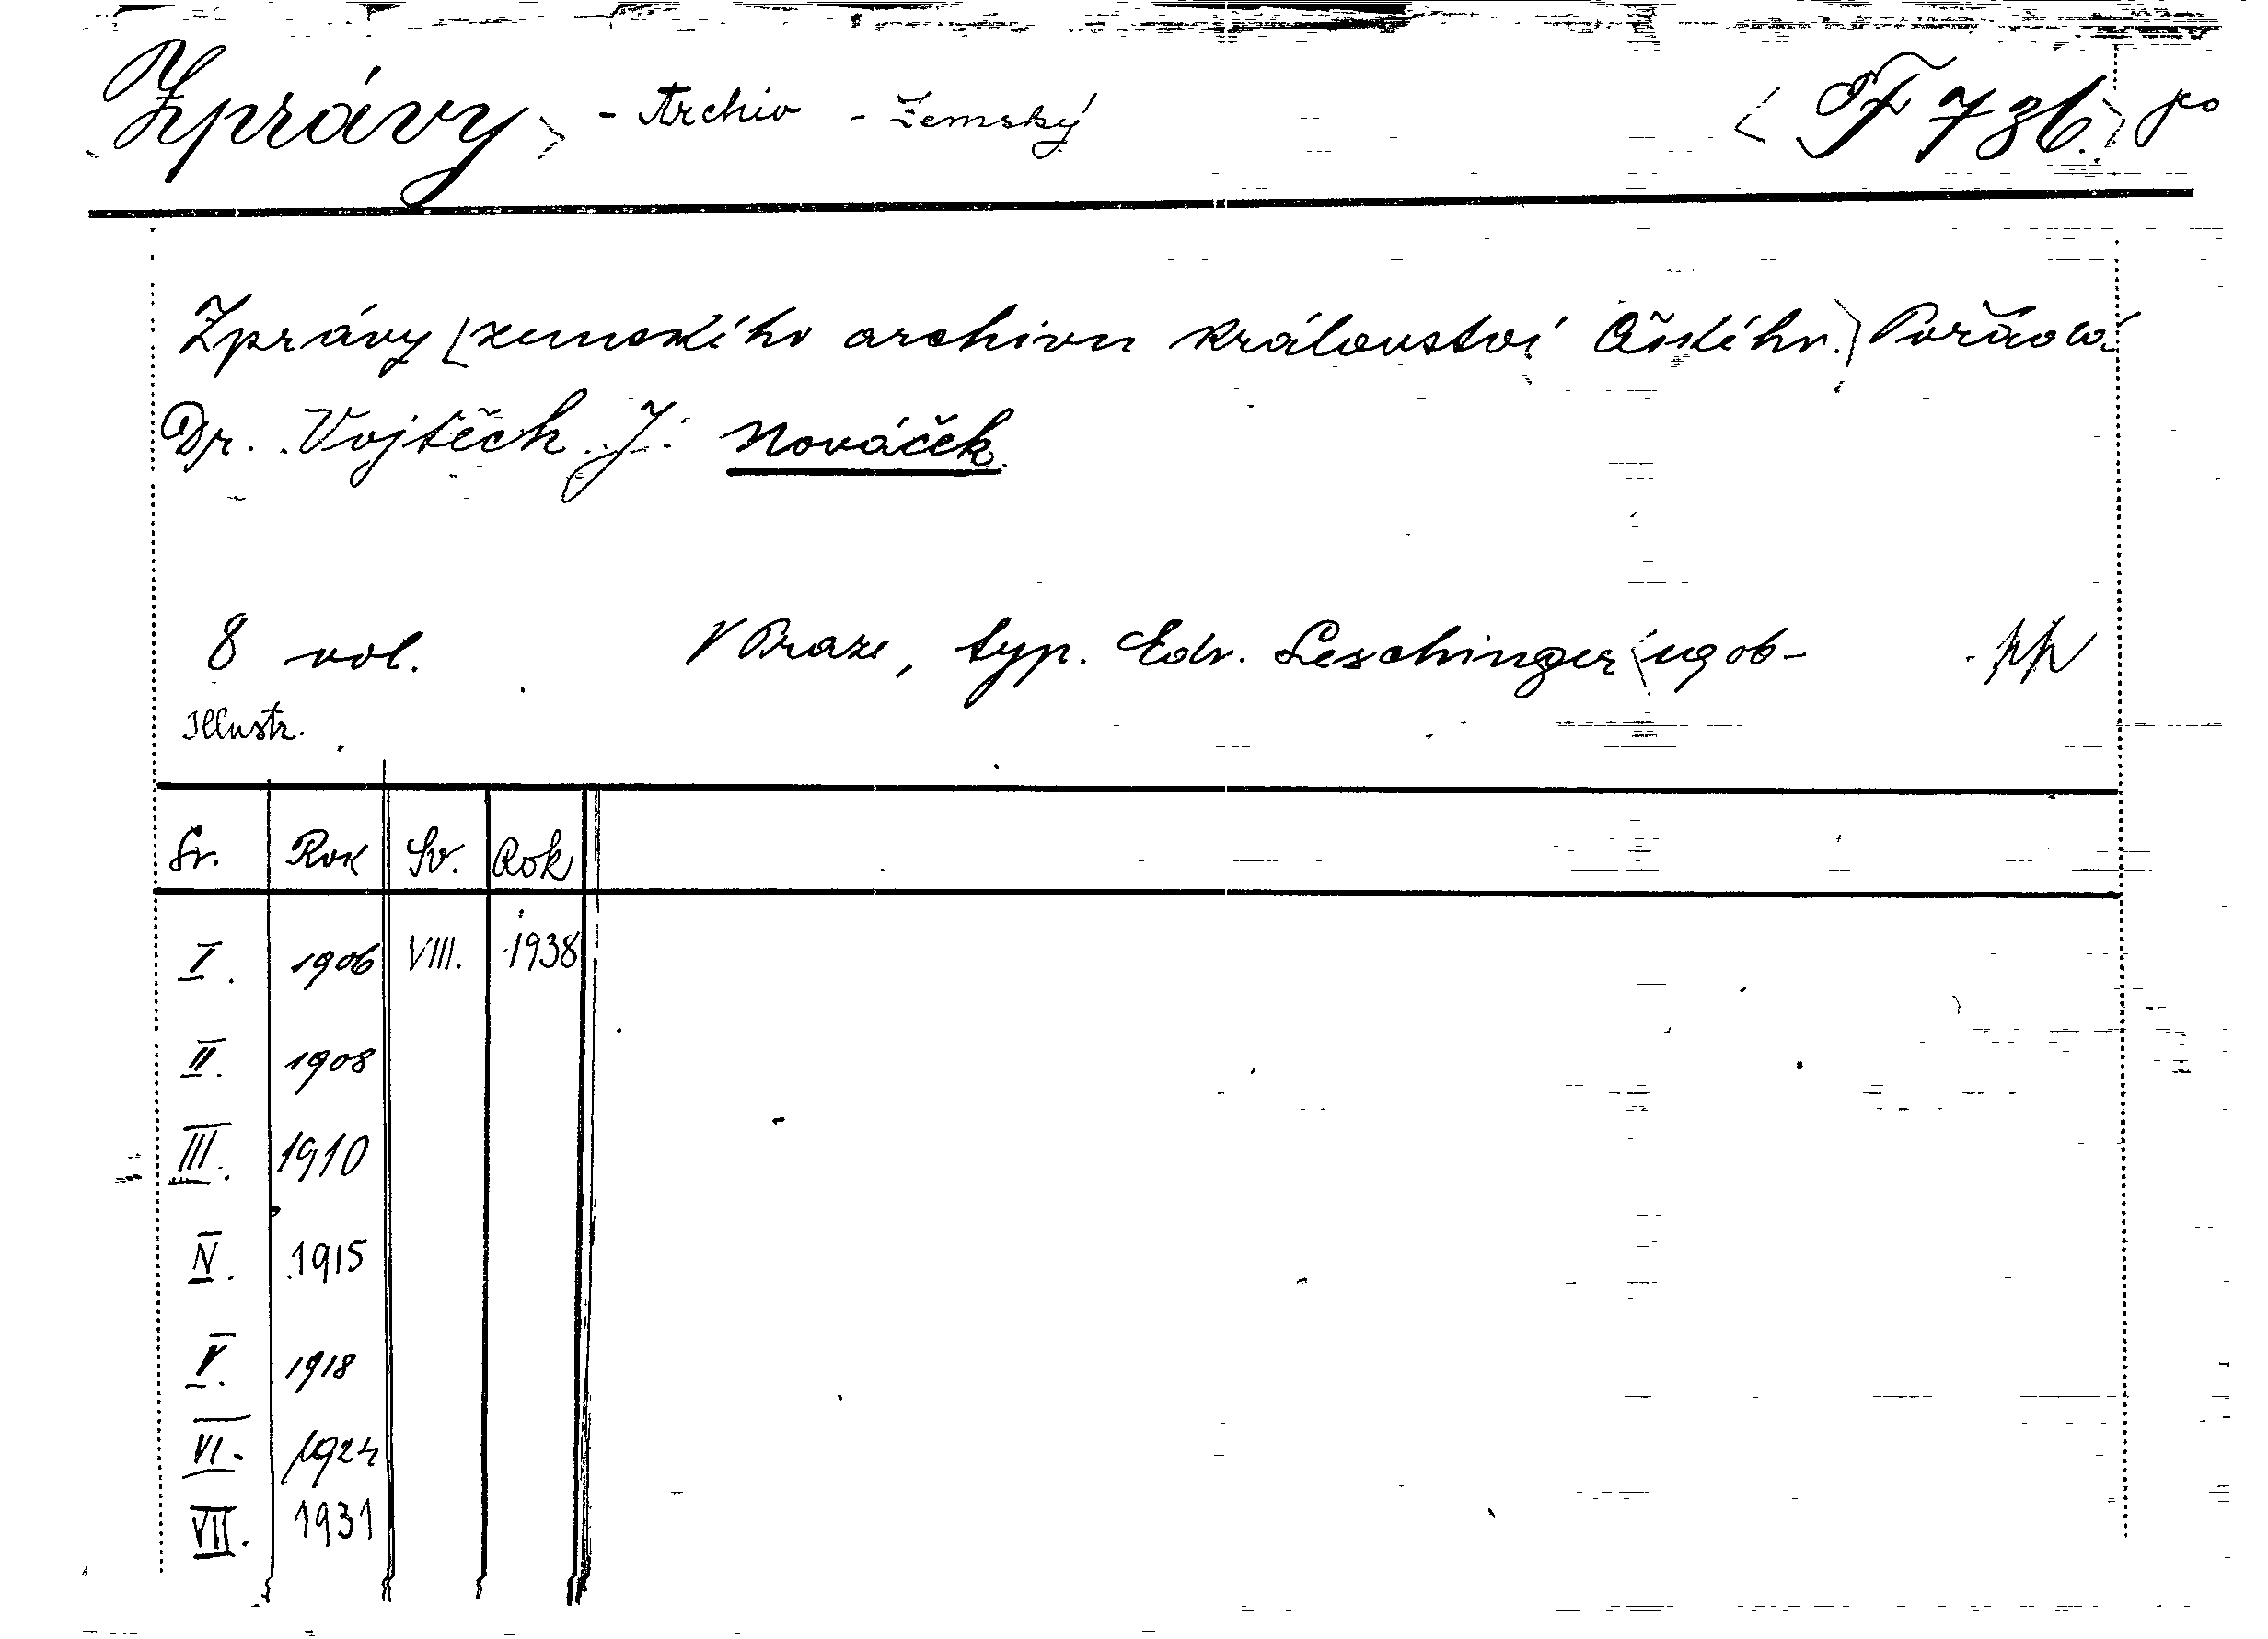 Zprávy - Archiv - Zemský F 736. po
Zprávy zemského archivu království Českého. Pořádá
Dr. Vojtěch J. Nováček.
8 vol. V Praze, typ. Edv. Leschinger 1906-
Illustr.
Sv. Rok Sv. Rok
I. 1906 VIII. 1938
II. 1908
III. 1910
IV. 1915
V. 1918
VI. 1924
VII. 1931